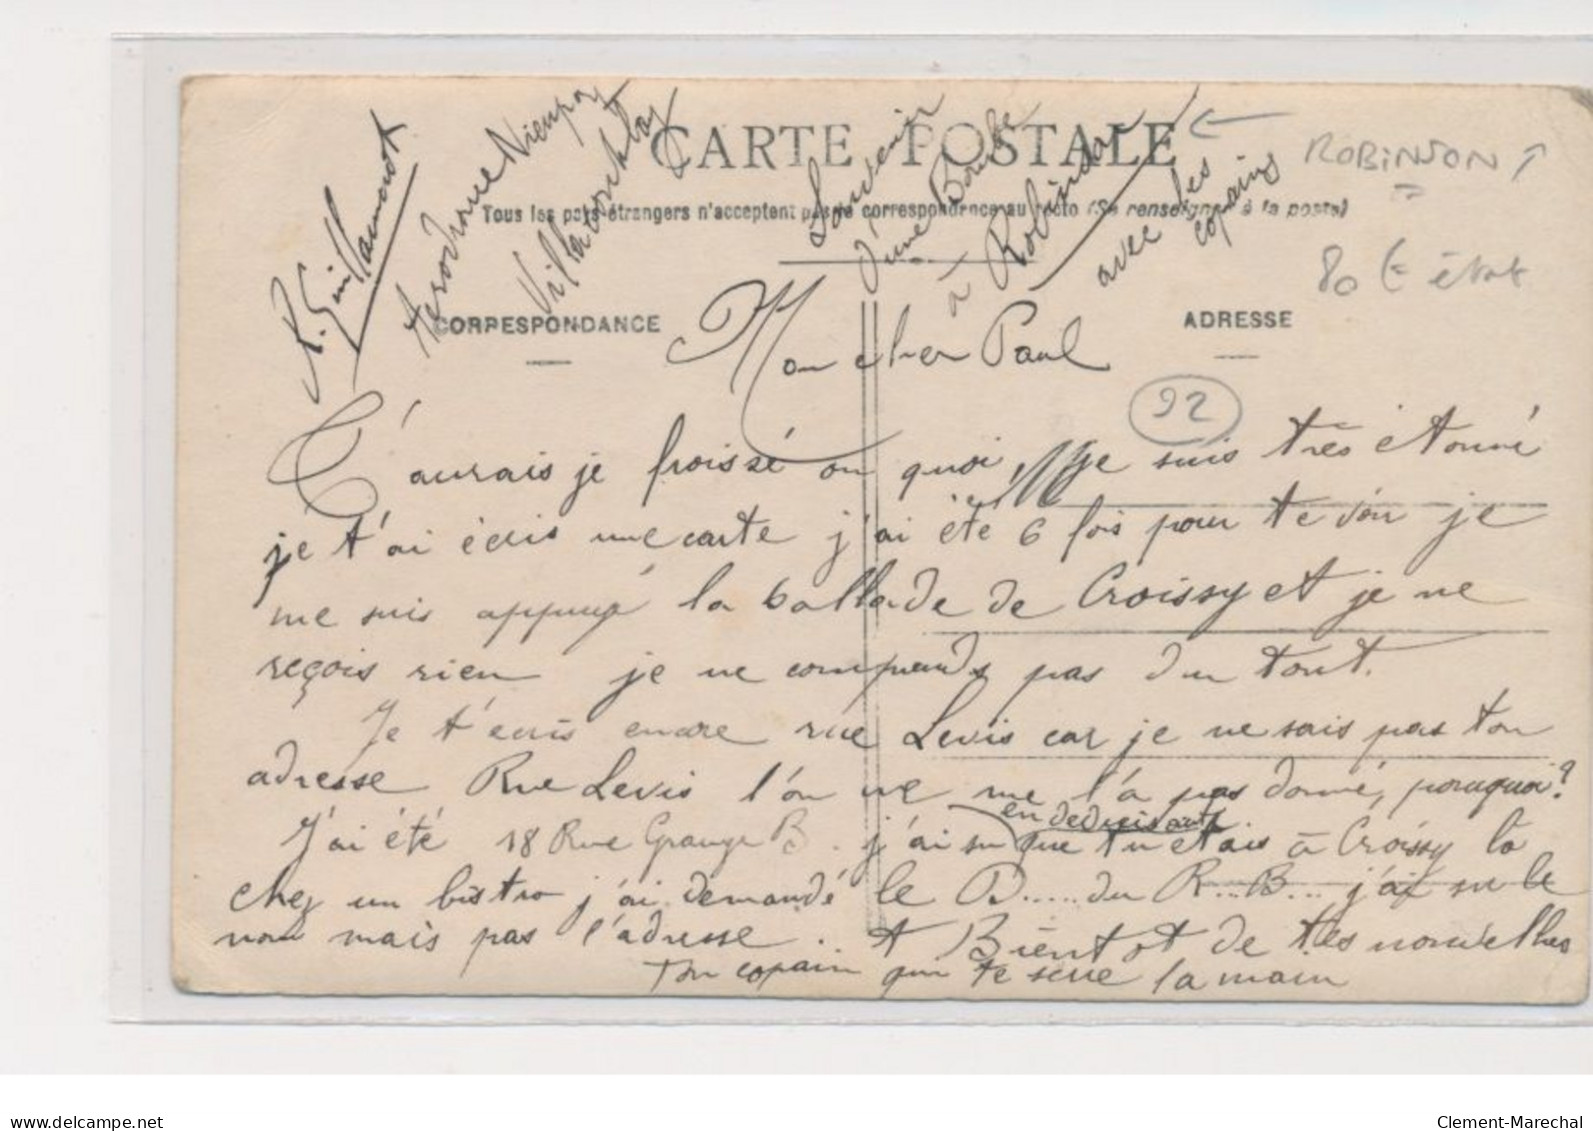 CARTE POSTALE
Tous les pays étrangers n'acceptent pas de correspondance au recto (Se renseigner à la poste)
CORRESPONDANCE
ADRESSE
R. Guillaumot
Aerodrome Nieuport
Villacoublay
Souvenir
d'une Bombe
à Robinson
avec les
copains
ROBINSON
80 € état
92
Mon cher Paul
T'aurais je froissé ou quoi, je suis très étonné
je t'ai écris une carte j'ai été 6 fois pour te voir je
me suis appuyé la ballade de Croissy et je ne
reçois rien je ne comprends pas du tout.
Je t'écris encore rue Levis car je ne sais pas ton
adresse Rue Levis l'on ne me l'a pas donné, pourquoi?
en deduisant
J'ai été 18 Rue Grange B. j'ai su que tu étais à Croissy là
chez un bistro j'ai demandé le D..... du R... B... j'ai su le
nom mais pas l'adresse .. A Bientot de tes nouvelles
Ton copain qui te serre la main
delcampe.net
Clement-Marechal